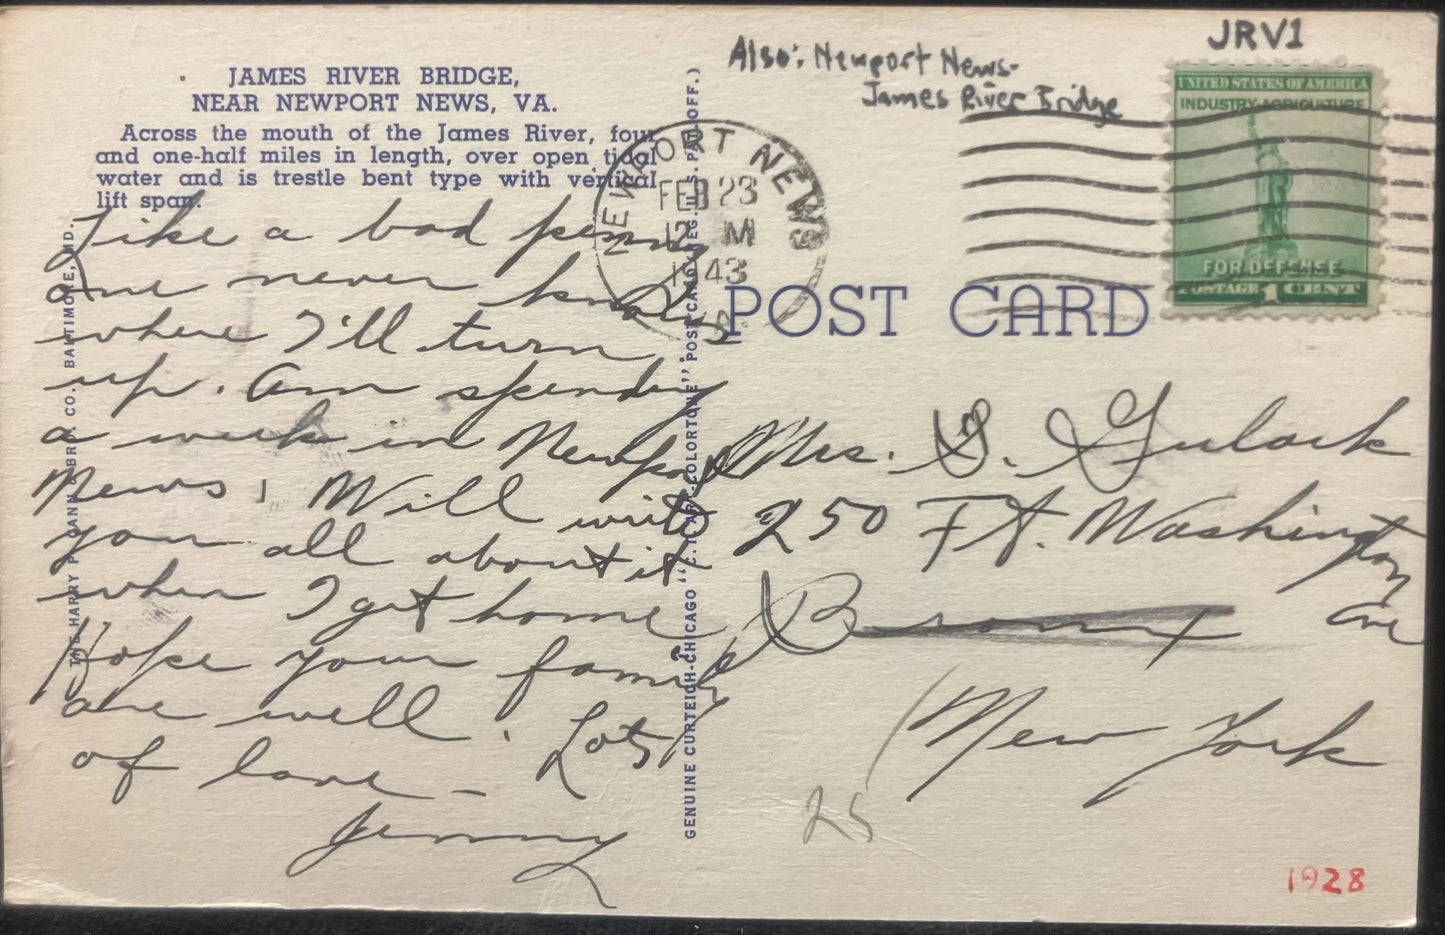 JRV1
Also: Newport News-
James River Bridge
JAMES RIVER BRIDGE,
NEAR NEWPORT NEWS, VA.
Across the mouth of the James River, four
and one-half miles in length, over open tidal
water and is trestle bent type with vertical
lift span.
UNITED STATES OF AMERICA
INDUSTRY AGRICULTURE
FOR DEFENSE
POSTAGE 1 CENT
NEWPORT NEWS
FEB 23
12 M
1943
VA.
POST CARD
Like a bad penny
one never knows
where I'll turn
up. Am spending
a week in Newport
News, Will write
you all about it
when I get home
Hope your family
are well. Lots
of love -
Jenny
Mrs. G. Gulack
250 Ft. Washington
Ave
Bronx
New York
25
1928
THE HARRY P. CANN & BRO. CO. BALTIMORE, MD.
GENUINE CURTEICH-CHICAGO "C.T. ART-COLORTONE" POST CARD (REG. U.S. PAT. OFF.)